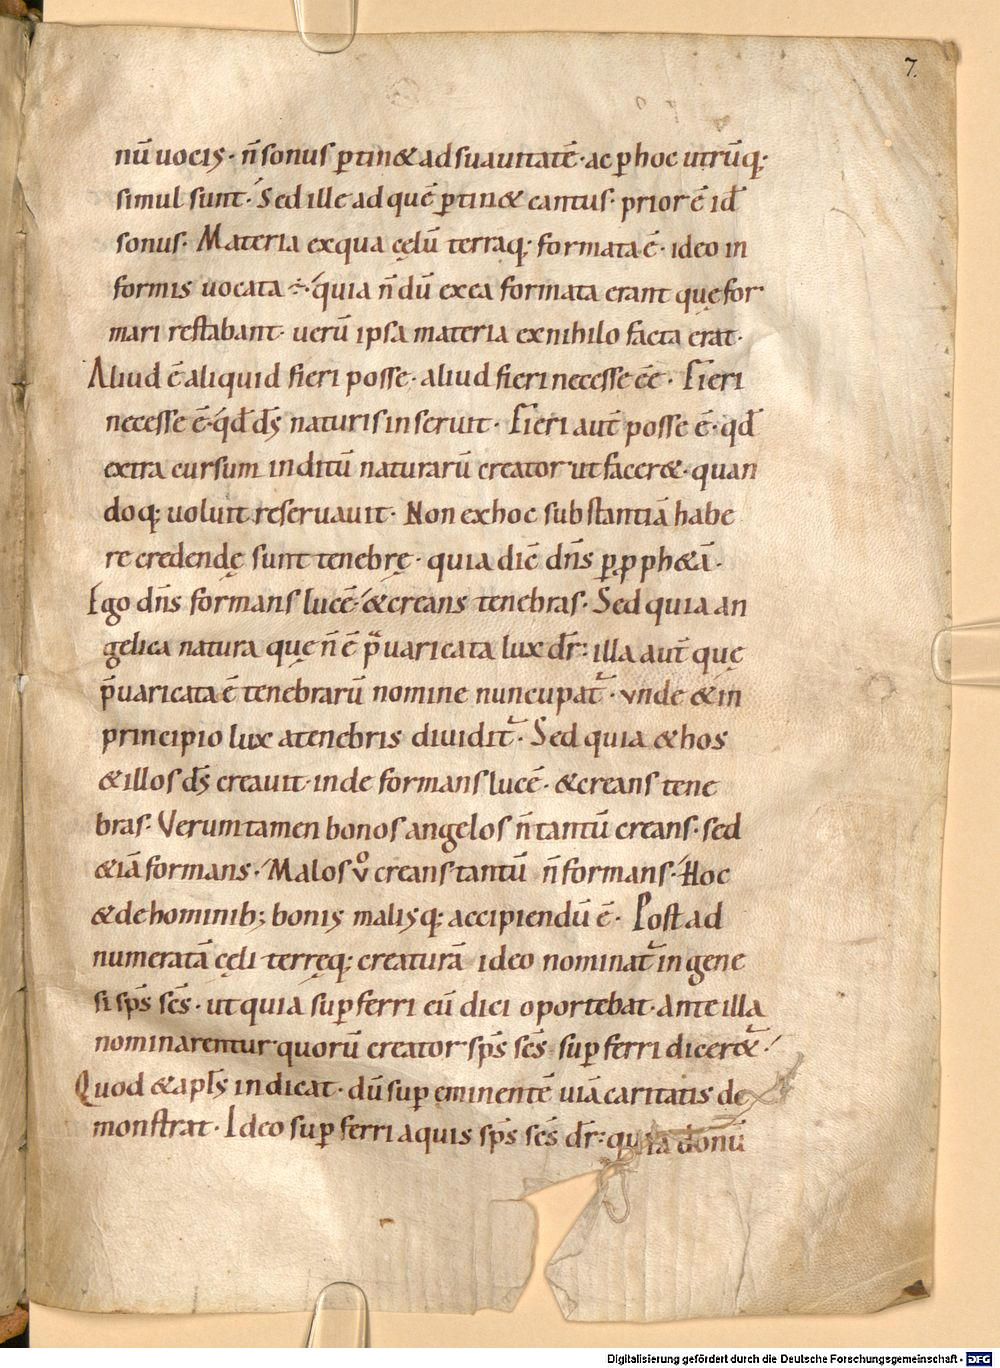 7.
nū uocis· n̄ sonus ꝑtin& ad suauitatē· ac ꝑ hoc utrūq;
simul sunt· Sed ille ad quē ꝑtin& cantus· prior ē id ē
sonus· Materia ex qua cęlū terraq; formata ē· ideo in
formis uocata ÷· quia n̄dū ex ea formata erant quę for
mari restabant· uerū ipsa materia ex nihilo facta erat·
Aliud ē aliquid fieri posse· aliud fieri necesse ēē· Fieri
necesse ē· qd̄ ds̄ naturis inseruit· Fieri aut̄ posse ē· qd̄
extra cursum inditū naturarū creator ut facer&· quan
doq; uoluit reseruauit· Non ex hoc substantiā habe
re credendę sunt tenebrę· quia dic̄ dn̄s ꝑ ꝓph&ā·
Ego dn̄s formans lucē· & creans tenebras· Sed quia an
gelica natura quę n̄ ē p̄uaricata lux dr̄: illa aut̄ quę
p̄uaricata ē tenebrarū nomine nuncupat᷑· vnde & in
principio lux a tenebris diuidit᷑· Sed quia & hos
& illos ds̄ creauit· inde formans lucē· & creans tene
bras· Verumtamen bonos angelos n̄ tantū creans· sed
&iā formans· Malos v̊ creans tantū n̄ formans· Hoc
& de hominib; bonis malisq; accipiendū ē· Post ad
numeratā cęli terręq; creaturā ideo nominat᷑ in gene
si sp̄s sc̄s· ut quia suꝑferri eū dici oportebat· ante illa
nominarentur quorū creator sp̄s sc̄s suꝑferri dicer&᷑·
Quod & apl̄s indicat· dū suꝑeminentē uiā caritatis de
monstrat· Ideo suꝑferri aquis sp̄s sc̄s dr̄: quia donū
Digitalisierung gefördert durch die Deutsche Forschungsgemeinschaft - DFG